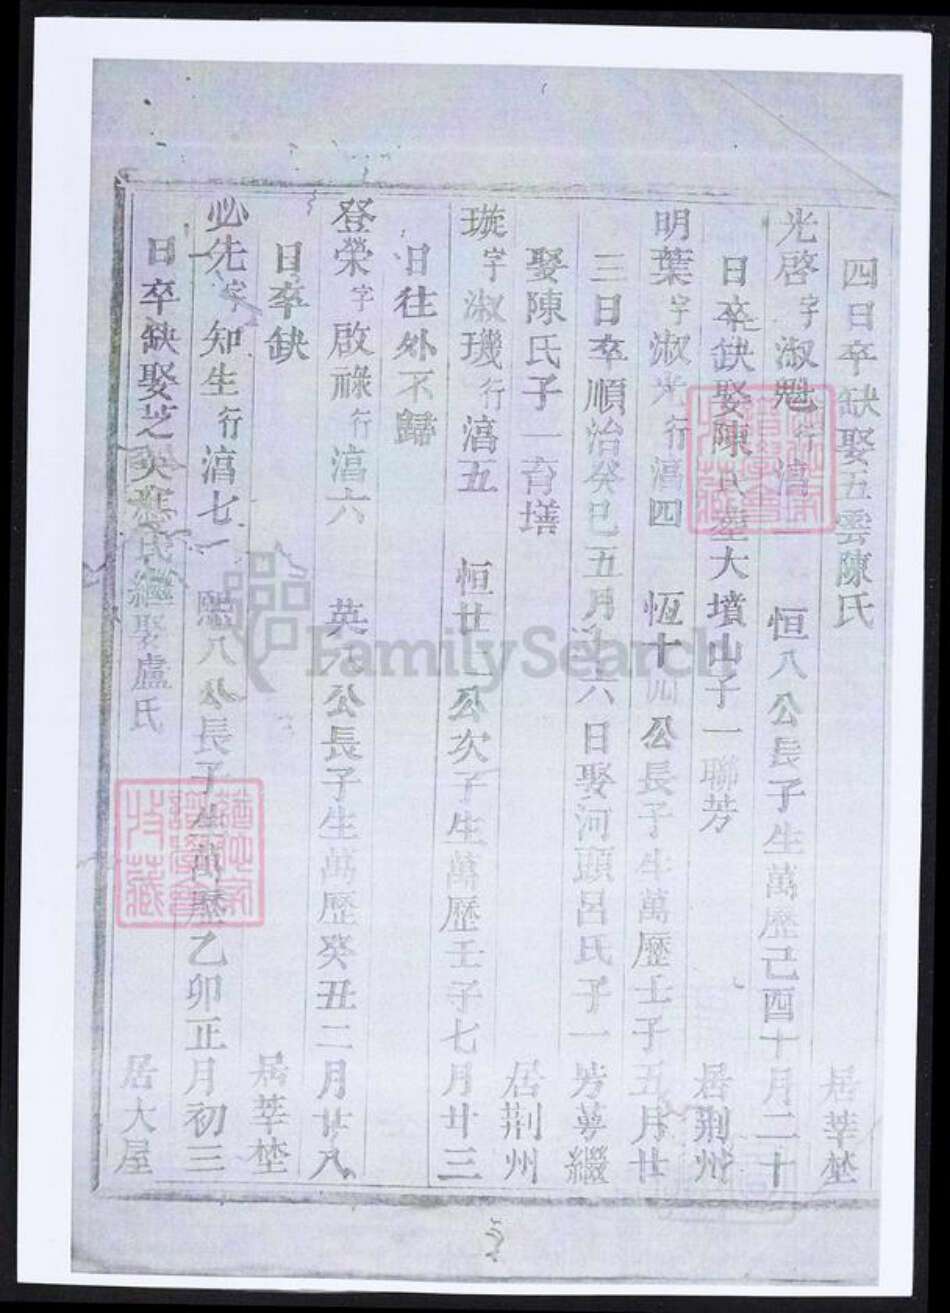 四日卒缺娶五雲陳氏 居莘塋
光啓字淑魁行濤一 恒八公長子生萬歷己酉十月二十
日卒缺娶陳氏塟大墳山子一聯芳 居荆州
明葉字淑光行濤四 恆十四公長子生萬歷壬子五月廿
三日卒順治癸巳五月十六日娶河頭呂氏子一芳夢繼
娶陳氏子一育墡 居荆州
璇字淑璣行濤五 恒廿一公次子生萬歷壬子七月廿三
日往外不歸
登榮字啟祿行濤六 英八公長子生萬歷癸丑二月廿八
日卒缺 居莘塋
必先字知生行濤七 熙八公長子生萬歷乙卯正月初三
日卒缺娶芝英應氏繼娶盧氏 居大屋
FamilySearch